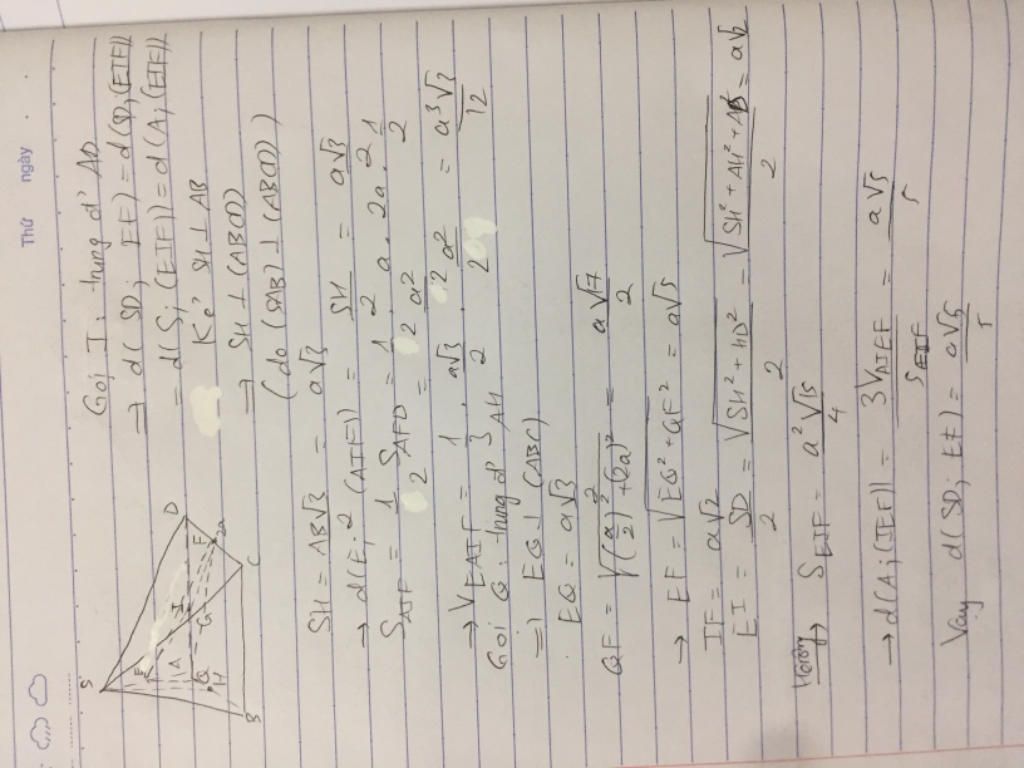 Thứ ngày
Gọi I: trung đ' AD
⇒ d(SD; EF) = d(D,(EIF))
= d(S; (EIF)) = d(A;(EIF))
Kẻ SH ⊥ AB
⇒ SH ⊥ (ABCD)
(do (SAB) ⊥ (ABCD))
S
E
A
I
D
Q
G
F
H
B
C
SH = AB√3/2 = a√3
→ d(E; (AIF)) = SH/2 = a√3/2
S_AIF = 1/2 S_AFD = 1/2 . a . 2a . 1/2
= a²/2
→ V_EAIF = 1/3 . a√3/2 . a²/2 = a³√3/12
Gọi Q: trung đ' AH
⇒ EQ ⊥ (ABC)
EQ = a√3/2
QF = √((a/2)² + (2a)²) = a√17/2
→ EF = √(EQ² + QF²) = a√5
IF = a√2
EI = SD/2 = √(SH² + HD²)/2 = √(SH² + AH² + AD²)/2 = a√2
Hêrông → S_EIF = a²√15/4
→ d(A;(IEF)) = 3V_AIEF/S_EIF = a√5/5
Vậy d(SD; EF) = a√5/5